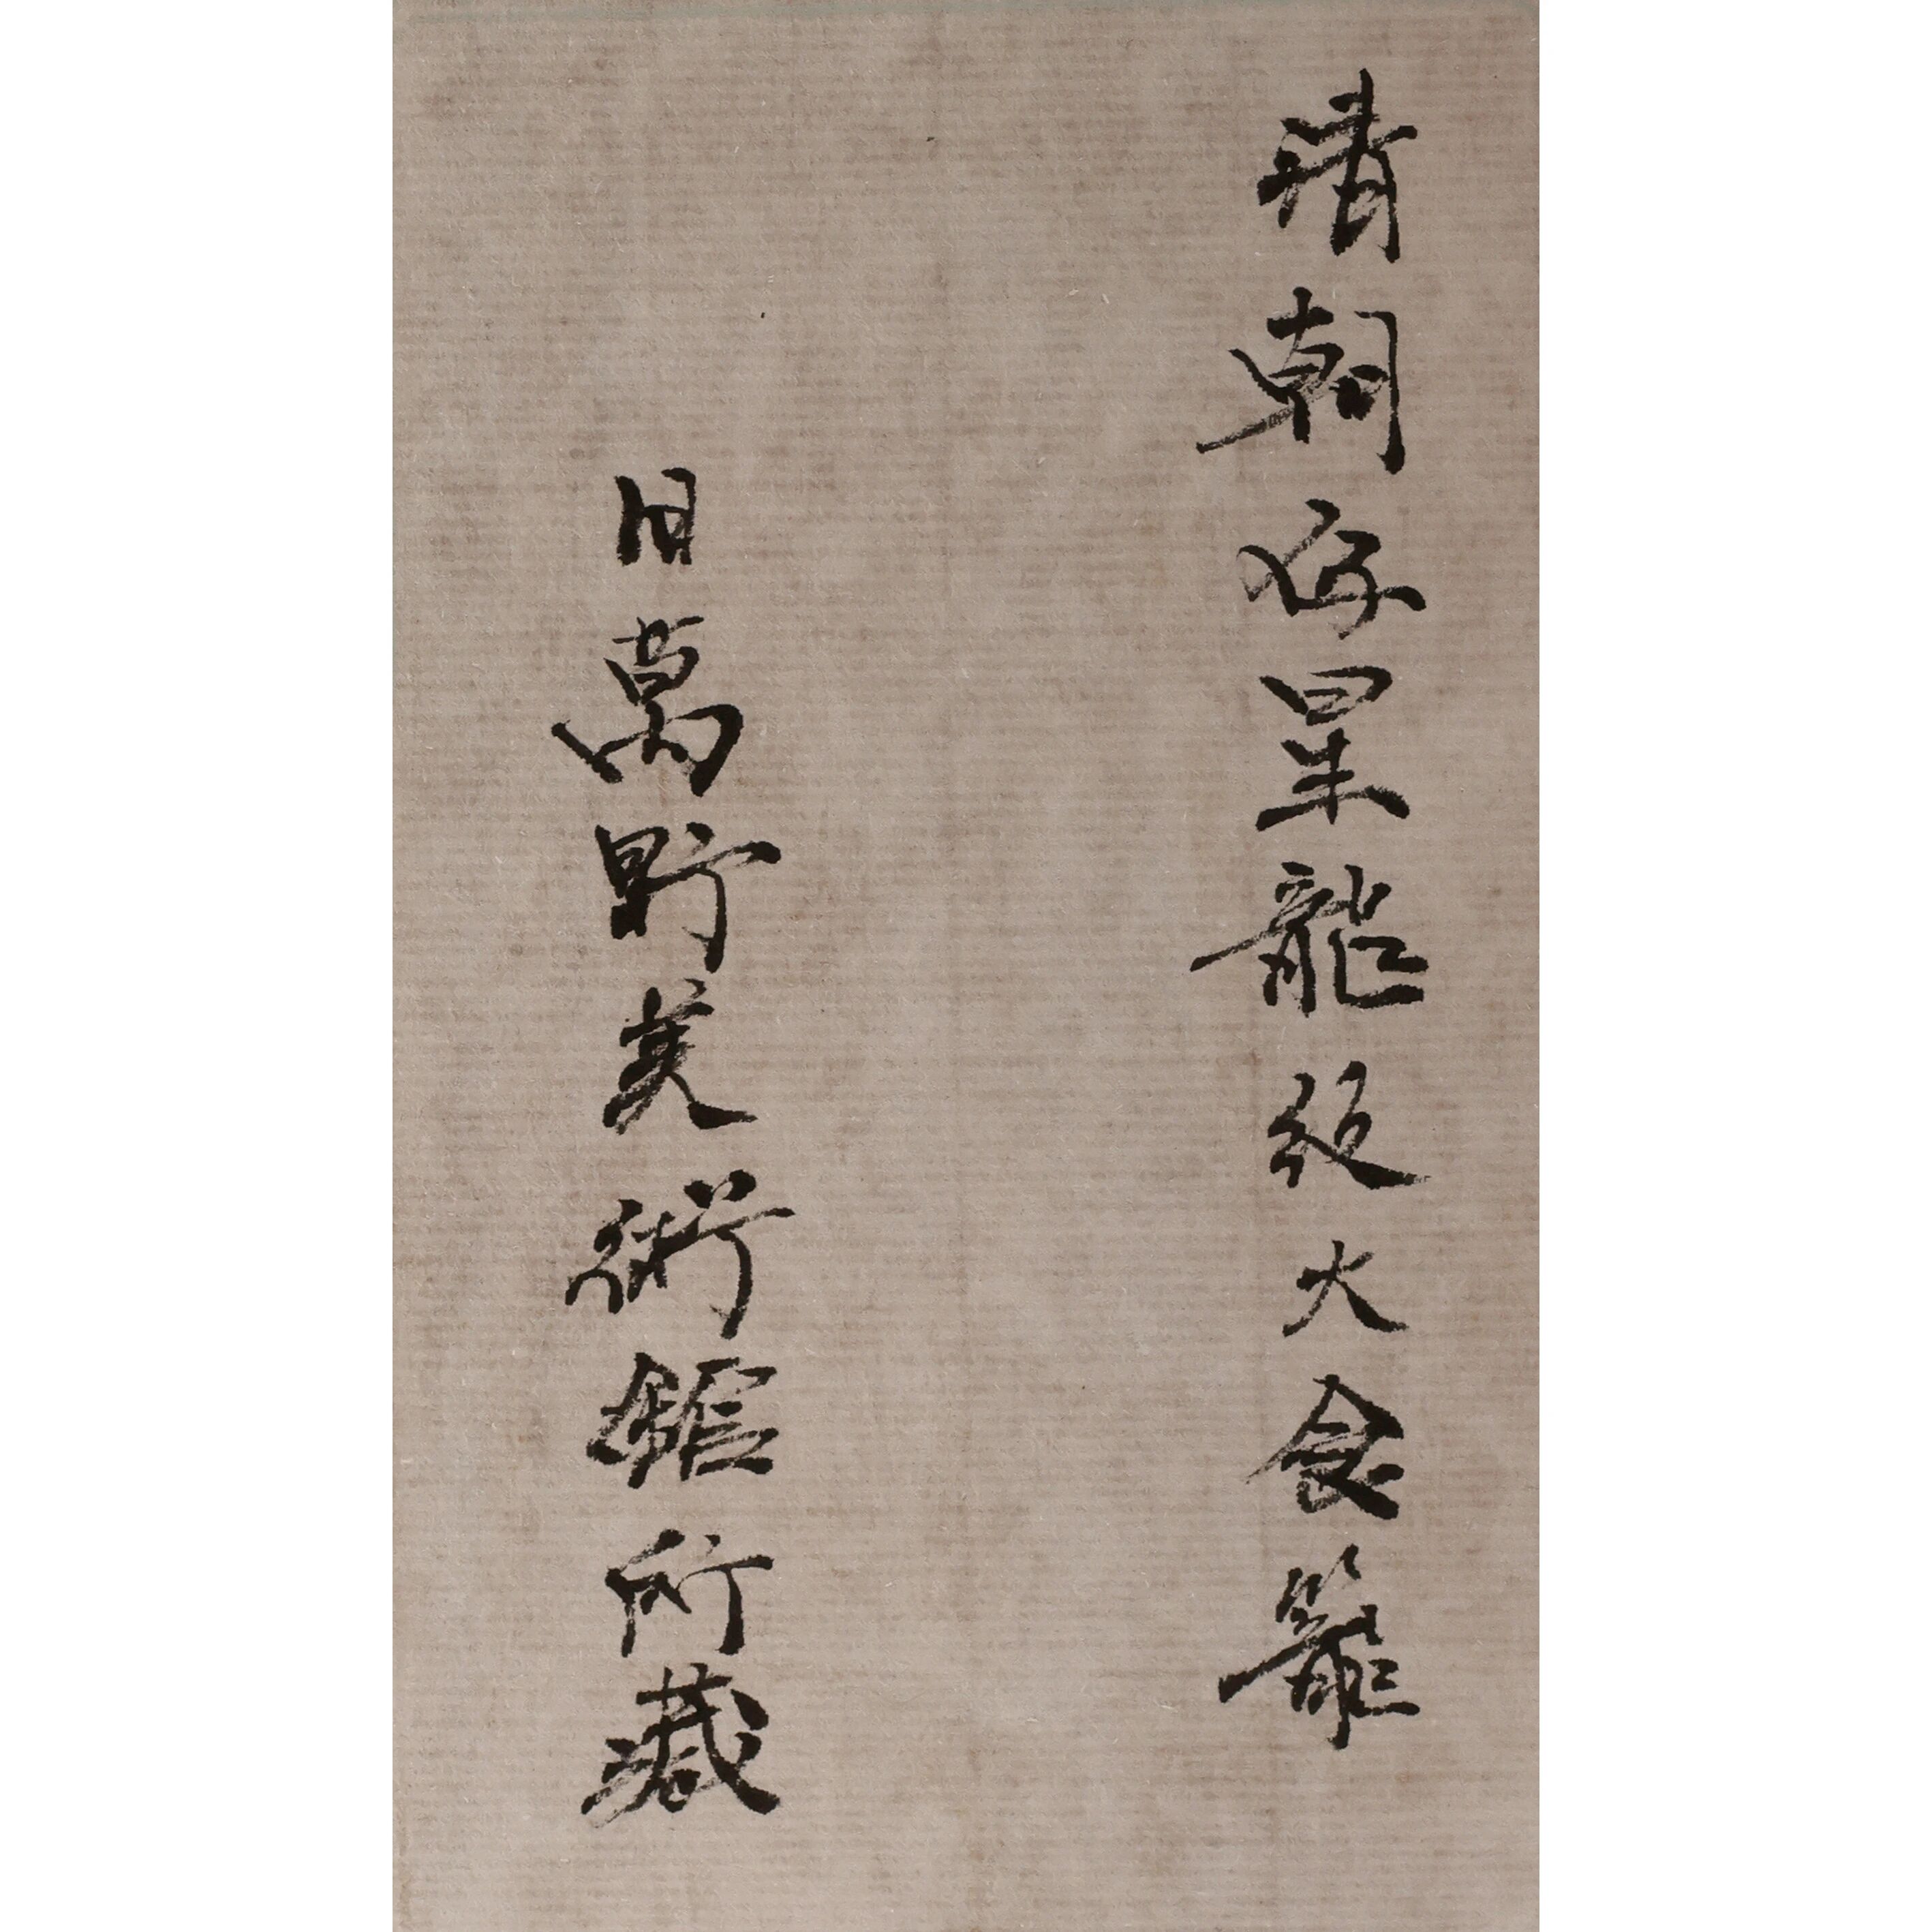 清朝存星龍紋大食籠
旧萬野美術館所藏